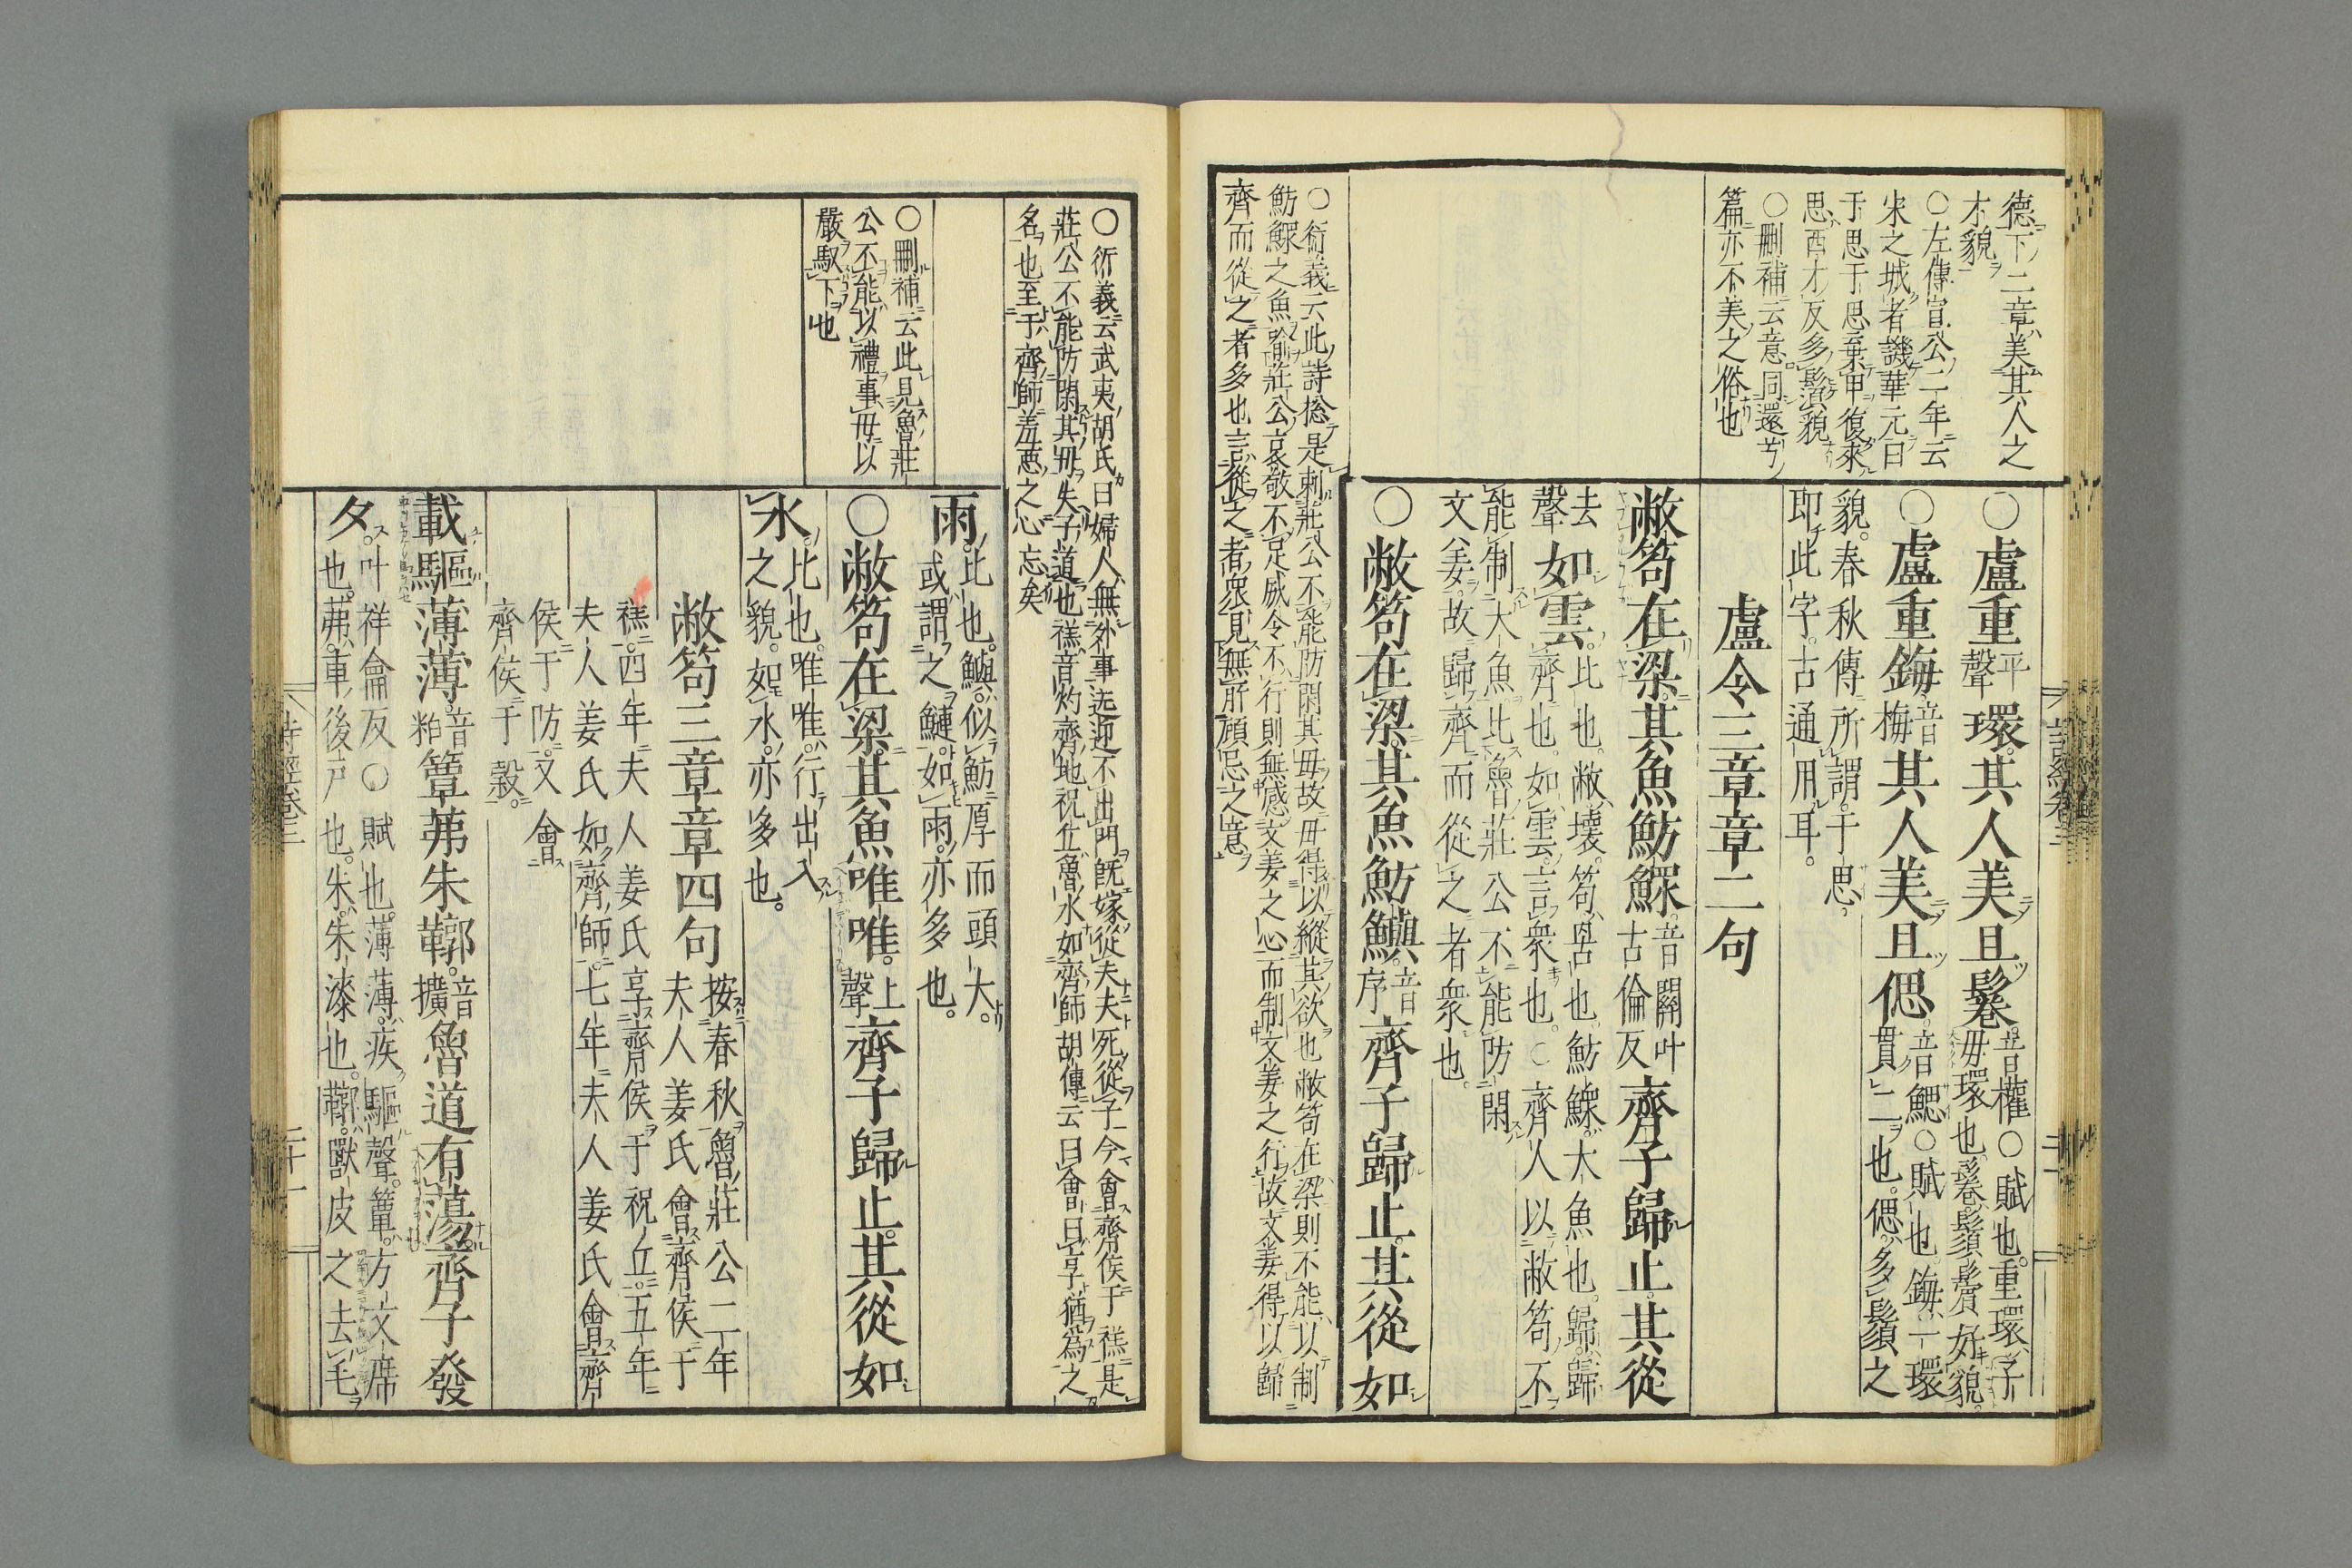 德下二章美其人之
才貌
○左傳宣公二年云
宋之城者譏華元曰
于思于思棄甲復來
思西才反多鬚貌
○刪補云意同還兮
篇亦不美之俗也
○盧重環其人美且鬈
平聲
音權○賦也重環子
母環也鬈鬚鬢好貌
○盧重鋂其人美且偲
音梅
音鰓○賦也鋂一環
貫二也偲多鬚之
貌春秋傳所謂于思
即此字古通用耳
盧令三章章二句
敝笱在梁其魚魴鰥
音關叶古倫反
齊子歸止其從
去聲
如雲
比也敝壞笱罟也魴鰥大魚也歸歸
齊也如雲言衆也○齊人以敝笱不
能制大魚比魯莊公不能防閑
文姜故歸齊而從之者衆也
○敝笱在梁其魚魴鱮
音序
齊子歸止其從如
○衍義云此詩總是刺莊公不能防閑其母故毋得以縱其欲也敝笱在梁則不能以制
魴鰥之魚喻莊公哀敬不足威令不行則無感文姜之心而制文姜之行故文姜得以歸
齊而從之者多也言從之者衆見無所顧忌之意
○衍義云武夷胡氏曰婦人無外事送迎不出門旣嫁從夫夫死從子今會齊侯于禚是
莊公不能防閑其母失子道也禚音灼齊地祝丘魯水如齊師胡傳云曰會曰享猶爲之
名也至于齊師羞惡之心忘矣
雨
比也鱮似魴厚而頭大
或謂之鰱如雨亦多也
○敝笱在梁其魚唯唯
上聲
齊子歸止其從如
水
比也唯唯行出入
之貌如水亦多也
○刪補云此見魯莊
公不能以禮事母以
嚴馭下也
敝笱三章章四句
按春秋魯莊公二年
夫人姜氏會齊侯于
禚四年夫人姜氏享齊侯于祝丘五年
夫人姜氏如齊師七年夫人姜氏會齊
侯于防又會
齊侯于穀
載驅薄薄
音粕
簟茀朱鞹
音擴
魯道有蕩齊子發
夕
叶祥龠反○賦也薄薄疾驅聲簟方文席
也茀車後戶也朱朱漆也鞹獸皮之去毛
詩經卷三
二十一